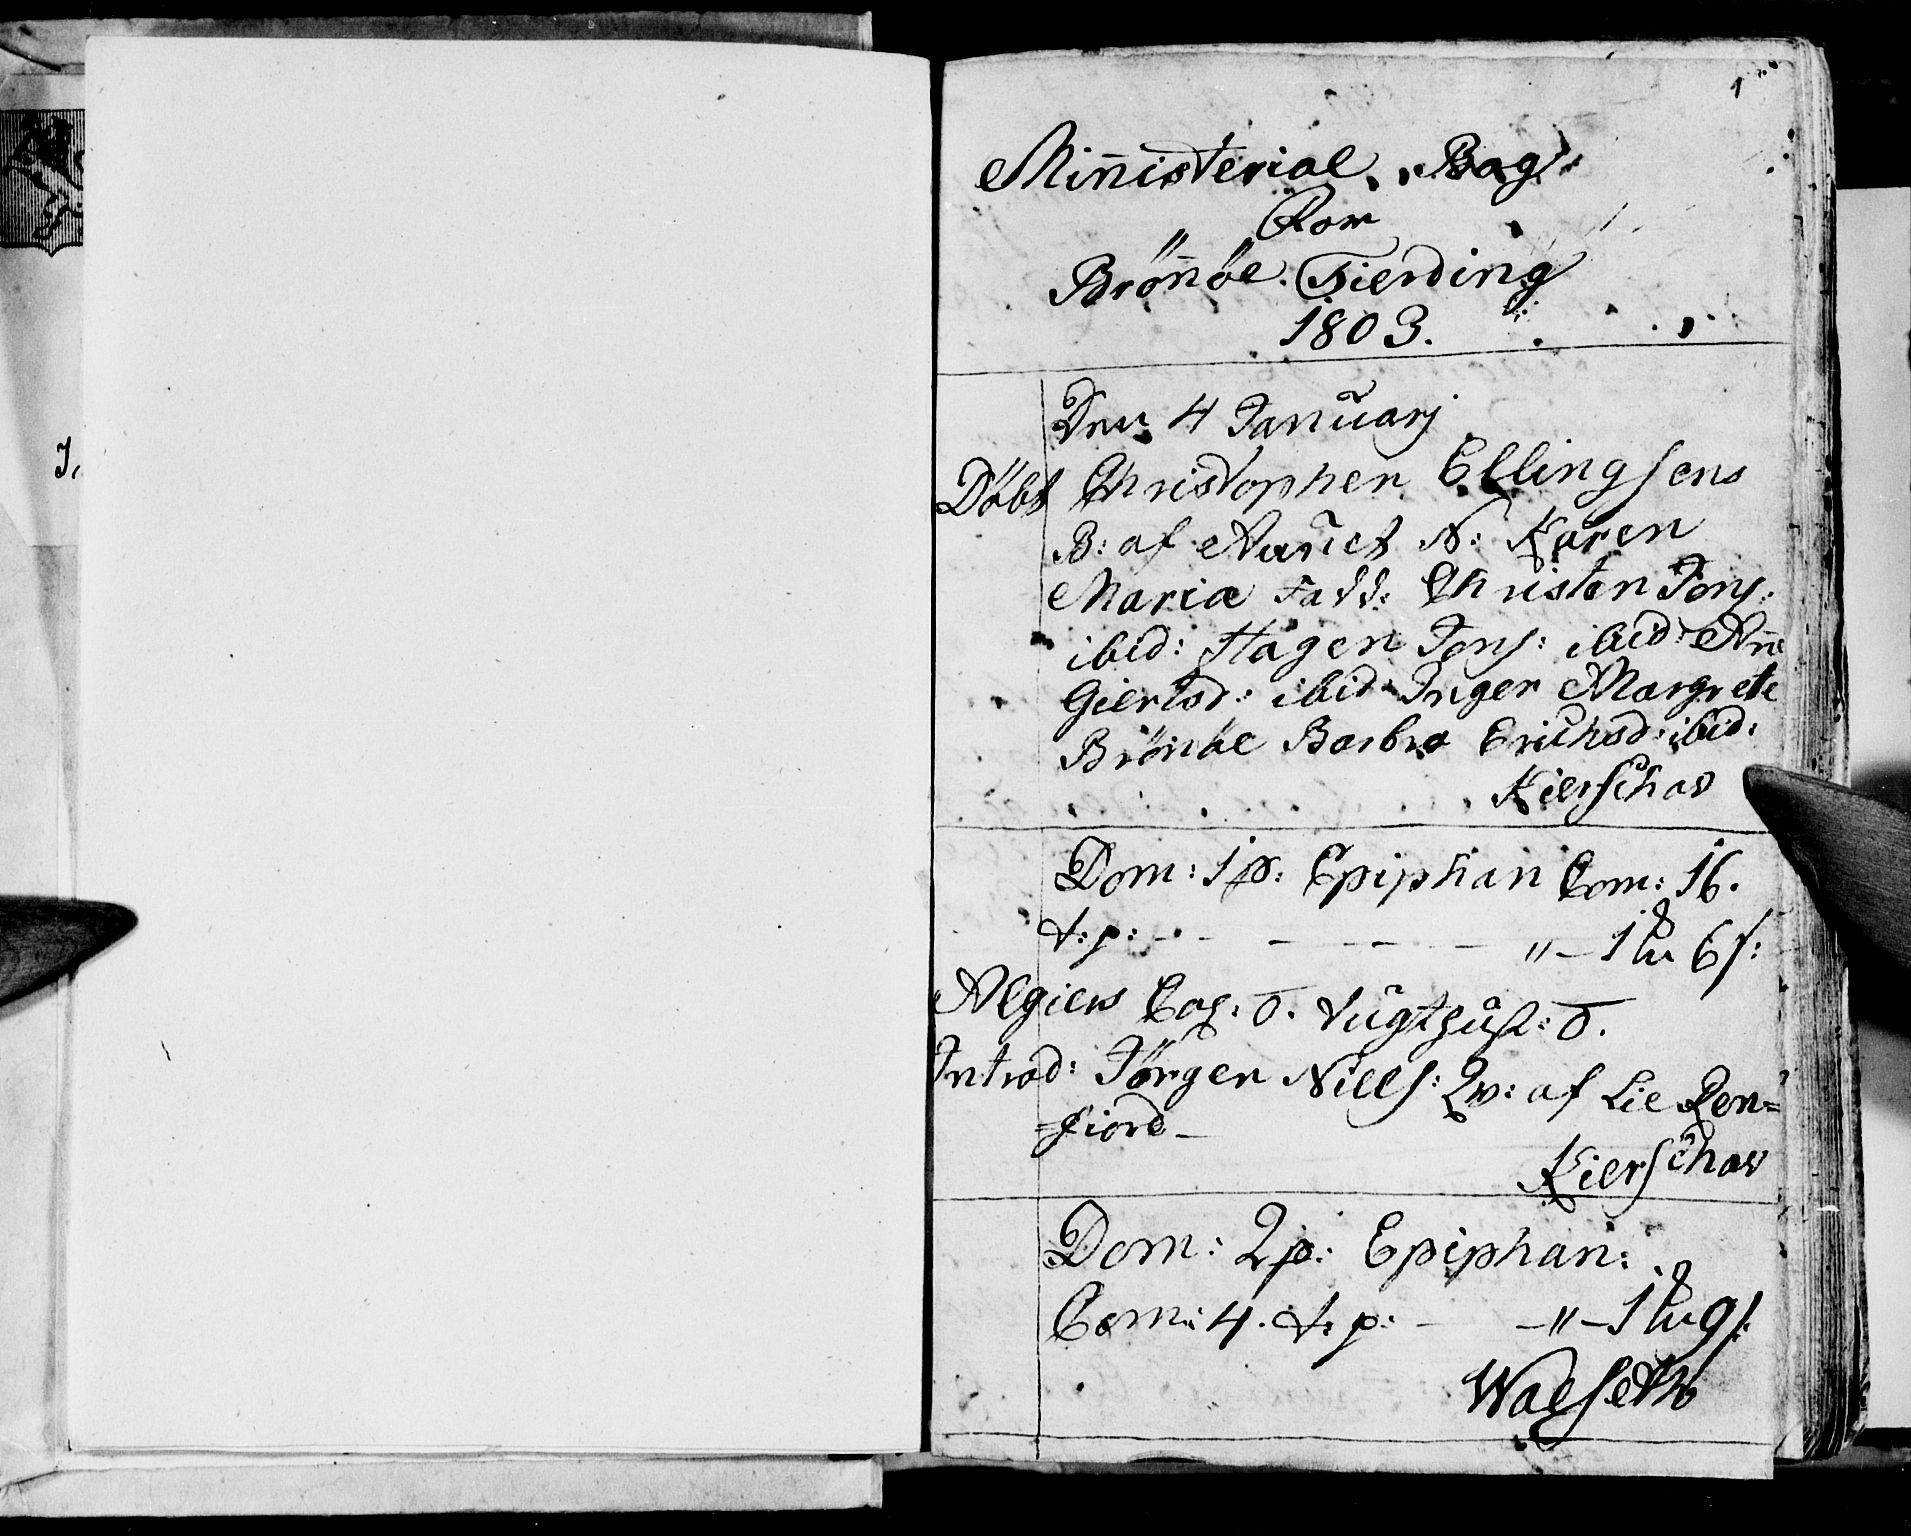 1
Ministerial Bog
For
Brönöe Fierding
1803.
Den 4 Januarj
Döbt Christopher Ellingsens
B: af N: Karen
Maria Fadd: Christen Jons:
ibid: Hagen Jons: ibid: Ane
Giertsd: ibid Inger Margrete
Brönöe Barbra Erichsd: ibid:
Kierschov
Dom: 1 p: Epiphan Com: 16.
t: p: - - - - - " - 1 6 s:
Algiers Cas: 0. Tugthus: 0.
Introd: Jörgen Niels: Qv: af Lie
=fiord -
Kierschov
Dom: 2 p: Epiphan:
Com: 4. t: p: - - " - 1 9 s:
Walseth